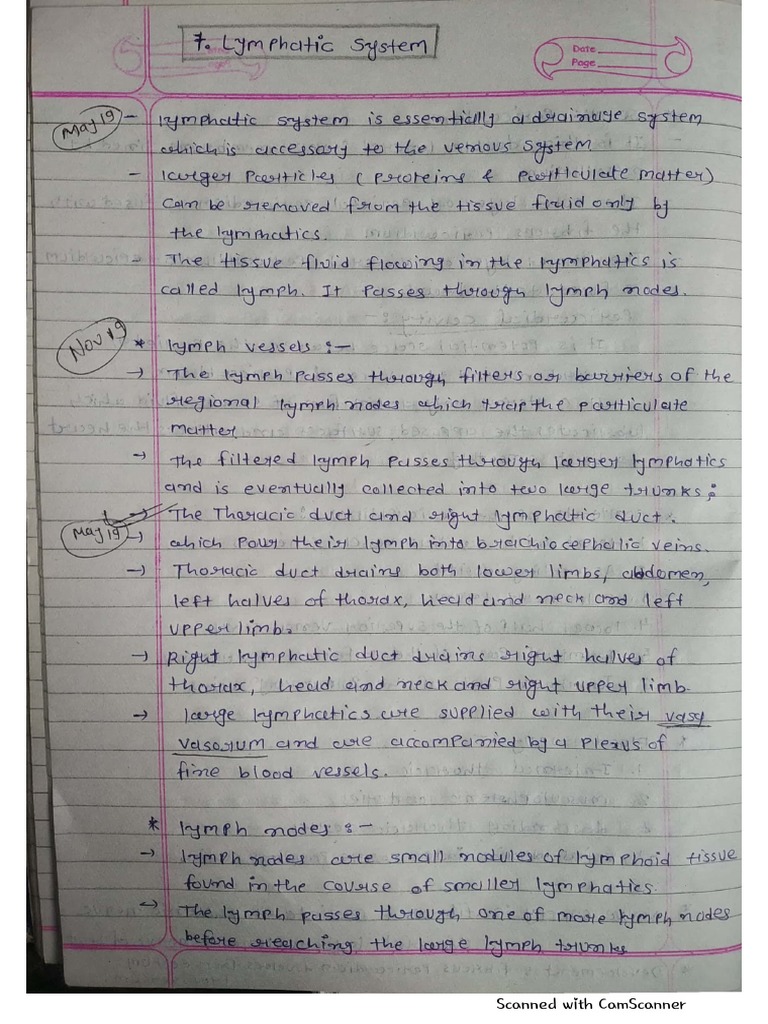 7. Lymphatic System
Date
Page
May 19
- Lymphatic system is essentially a drainage system
which is accessary to the venous system
- Larger Particles ( Proteins & Particulate matter)
can be removed from the tissue fluid only by
the lymphatics.
- The tissue fluid flowing in the lymphatics is
called lymph. It Passes through lymph nodes.
Nov 19
* Lymph vessels :-
→ The lymph passes through filters or barriers of the
regional lymph nodes which trap the particulate
matter
→ The filtered lymph passes through larger lymphatics
and is eventually collected into two large trunks;
→ The Thoracic duct and right lymphatic duct.
May 19
→ which pour their lymph into brachiocephalic veins.
→ Thoracic duct drains both lower limbs, abdomen,
left halves of thorax, head and neck and left
upper limb.
→ Right lymphatic duct drains right halves of
thorax, head and neck and right upper limb.
→ large lymphatics are supplied with their vasa
vasorum and are accompanied by a plexus of
fine blood vessels.
* Lymph nodes :-
→ Lymph nodes are small nodules of lymphoid tissue
found in the course of smaller lymphatics.
→ The lymph passes through one of more lymph nodes
before reaching the large lymph trunks
Scanned with CamScanner